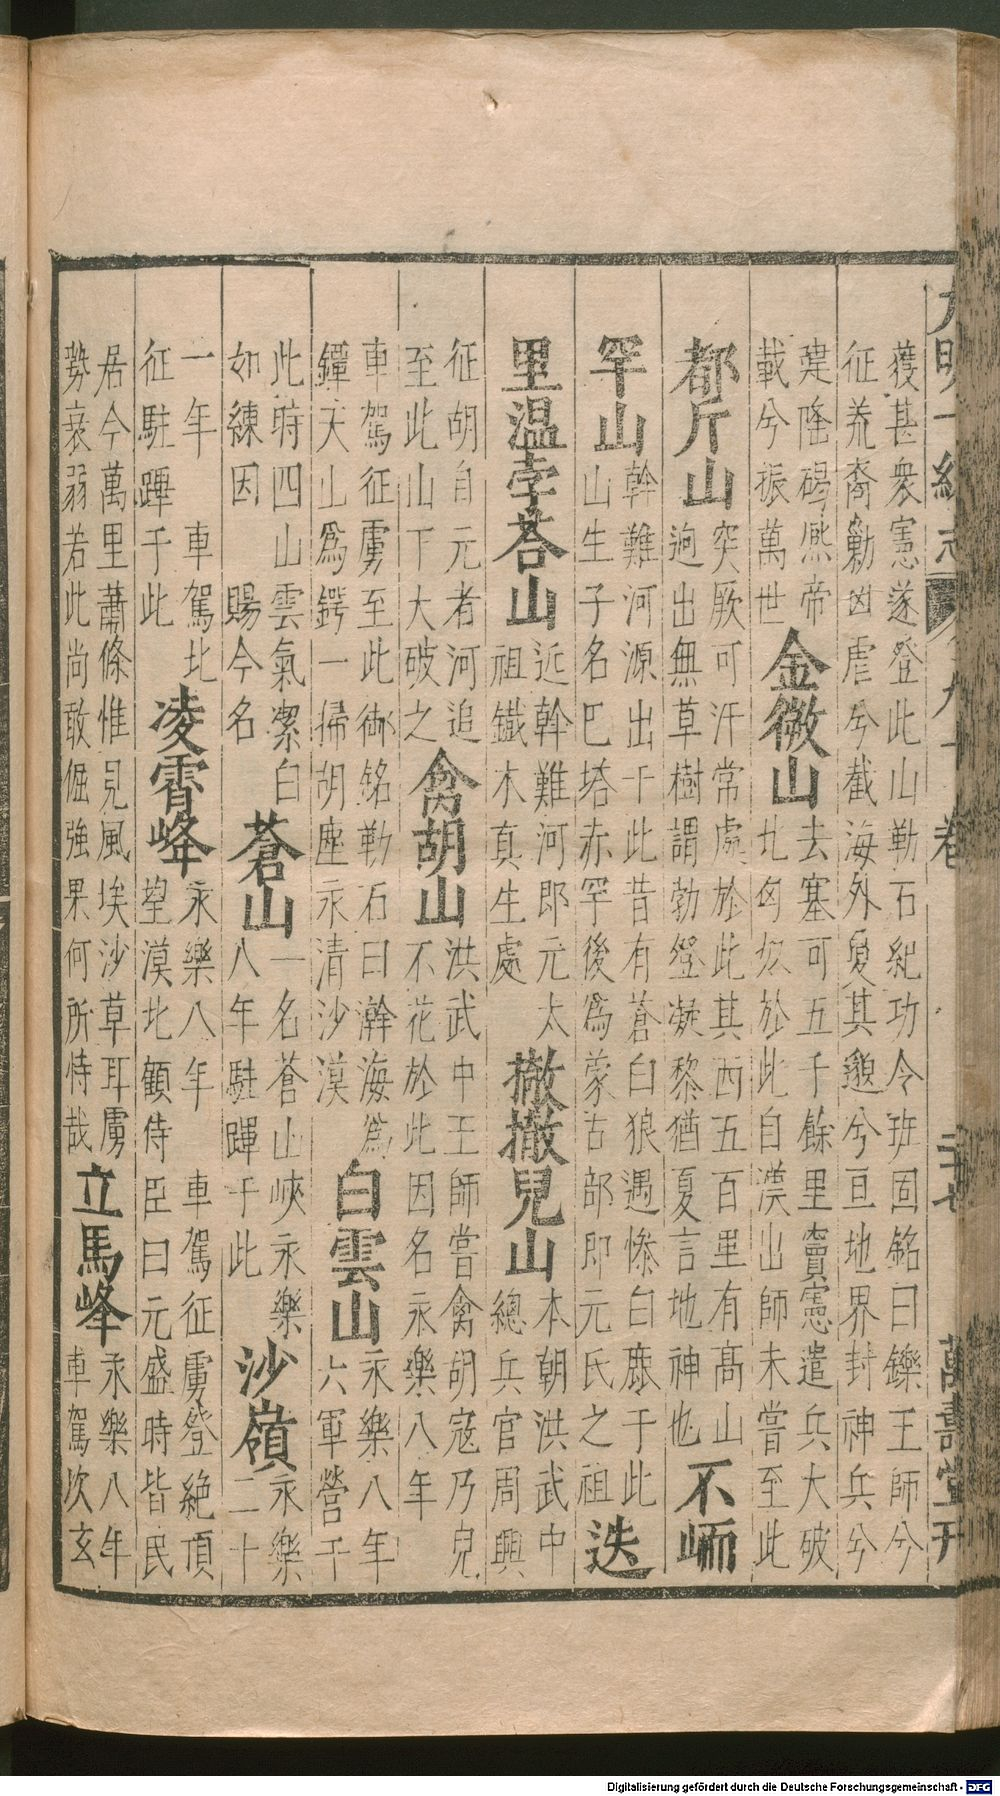 大明一統志 九十卷 二十七 萬壽堂刊
獲甚衆憲遂登此山勒石紀功令班固銘曰鑠王師兮
征荒裔勦凶虐兮截海外夐其邈兮亘地界封神兵兮
建隆碣熈帝
載兮振萬世
金微山
去塞可五千餘里竇憲遣兵大破
北匈奴於此自漢出師未嘗至此
都斤山
突厥可汗常處於此其西五百里有髙山
逈出無草樹謂勃登凝黎猶夏言地神也
不峏
罕山
幹難河源出于此昔有蒼白狼遇慘白鹿于此
山生子名巴塔赤罕後爲蒙古部即元氏之祖
迭
里温孛荅山
近幹難河郎元太
祖鐵木真生處
撤撤兒山
本朝洪武中
總兵官周興
征胡自元者河追
至此山下大破之
禽胡山
洪武中王師嘗禽胡寇乃兒
不花於此因名永樂八年
車駕征虜至此御銘勒石曰瀚海爲
鐔天山爲鍔一掃胡塵永清沙漠
白雲山
永樂八年
六軍營于
此時四山雲氣潔白
如練因 賜今名
蒼山
一名蒼山峽永樂
八年駐蹕于此
沙嶺
永樂
二十
一年 車駕北
征駐蹕于此
凌霄峰
永樂八年 車駕征虜登絶頂
望漠北顧侍臣曰元盛時皆民
居今萬里蕭條惟見風埃沙草耳虜
勢衰弱若此尚敢倔強果何所恃哉
立馬峰
永樂八年
車駕次玄
Digitalisierung gefördert durch die Deutsche Forschungsgemeinschaft - DFG